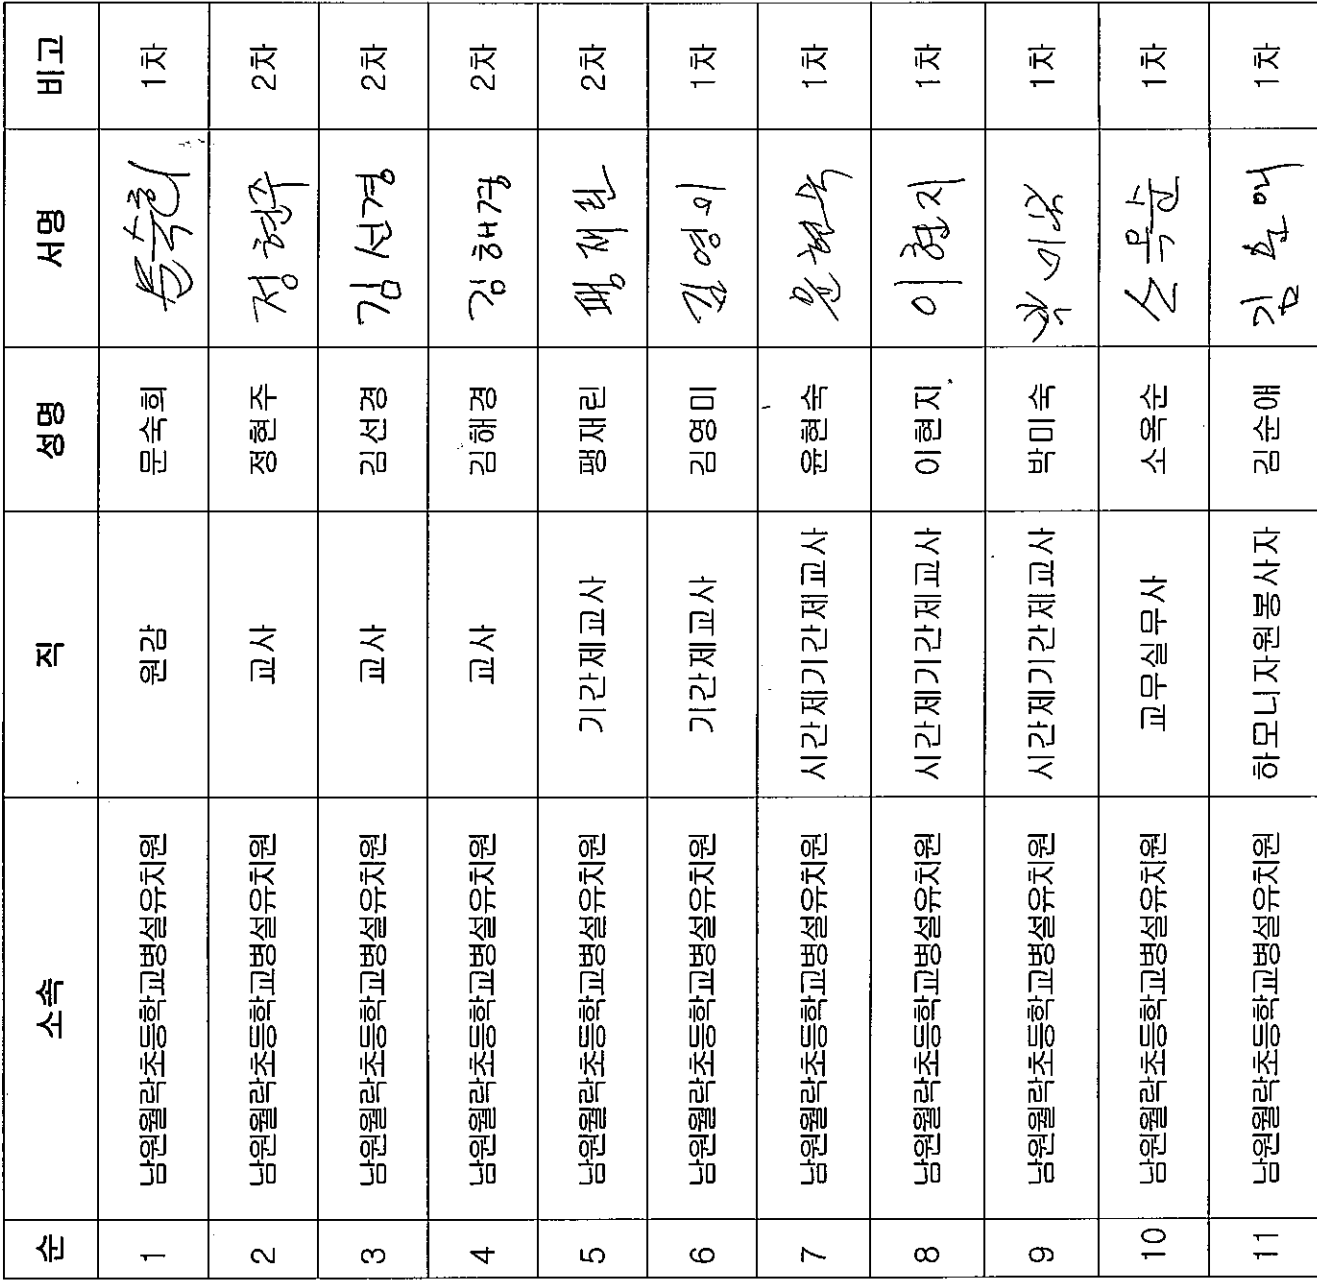 순 소속 직 성명 서명 비고
1 남원월락초등학교병설유치원 원감 문숙희 문숙희 1차
2 남원월락초등학교병설유치원 교사 정현주 정현주 2차
3 남원월락초등학교병설유치원 교사 김선경 김선경 2차
4 남원월락초등학교병설유치원 교사 김해경 김해경 2차
5 남원월락초등학교병설유치원 기간제교사 팽재린 팽재린 2차
6 남원월락초등학교병설유치원 기간제교사 김영미 김영미 1차
7 남원월락초등학교병설유치원 시간제기간제교사 윤현숙 윤현숙 1차
8 남원월락초등학교병설유치원 시간제기간제교사 이현지 이현지 1차
9 남원월락초등학교병설유치원 시간제기간제교사 박미숙 박미숙 1차
10 남원월락초등학교병설유치원 교무실무사 소옥순 소옥순 1차
11 남원월락초등학교병설유치원 하모니자원봉사자 김순애 김순애 1차